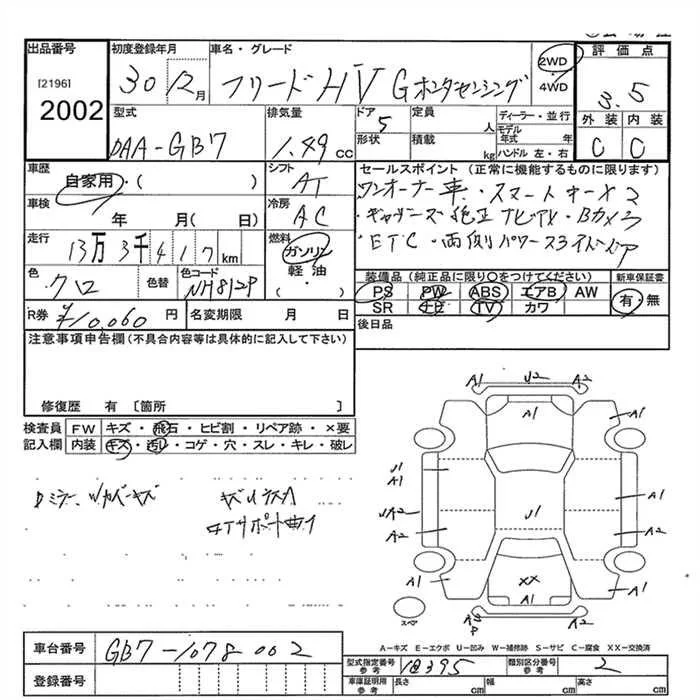 出品番号 初度登録年月 車名・グレード 2WD 4WD 評価点
[2196] 2002 30 12月 フリードHV Gホンダセンシング 3.5
型式 排気量 ドア 定員 ディーラー・並行 外装 内装
DAA-GB7 1.49cc 5 人 モデル年式 年 C C
形状 積載 kg ハンドル 左・右
車歴 シフト セールスポイント (正常に機能するものに限ります)
自家用・( ) AT ワンオーナー車・スマートキーX2
車検 冷房
年 月(日) AC ・ギャザーズ純正ナビTV・Bカメラ
走行 燃料 ETC・両側パワースライドドア
13万3千417km ガソリン
色 色替 色コード 軽油
クロ NH812P (・)
装備品 (純正品に限り○をつけてください) 新車保証書
PS PW ABS エアB AW 有・無
SR ナビ TV カワ
R券 ¥10,060円 名変期限 月 日 後日品
注意事項申告欄(不具合内容等は具体的に記入して下さい)
修復歴 有 〔箇所 〕
検査員 FW キズ・飛石・ヒビ割・リペア跡・×要
記入欄 内装 キズ・汚レ・コゲ・穴・スレ・キレ・破レ
A1 U2 A2
A1 A1
U1
A1 A1
U1
UA2
A2 A2
XX
A1 A1 A1
スペア A2 P A2
A-キズ E-エクボ U-凹み W-補修跡 S-サビ C-腐食 XX-交換済
車台番号 GB7-1078002
登録番号
型式指定番号 参考 18395 類別区分番号 参考 2
車庫証明用 参考 長さ cm 幅 cm 高さ cm